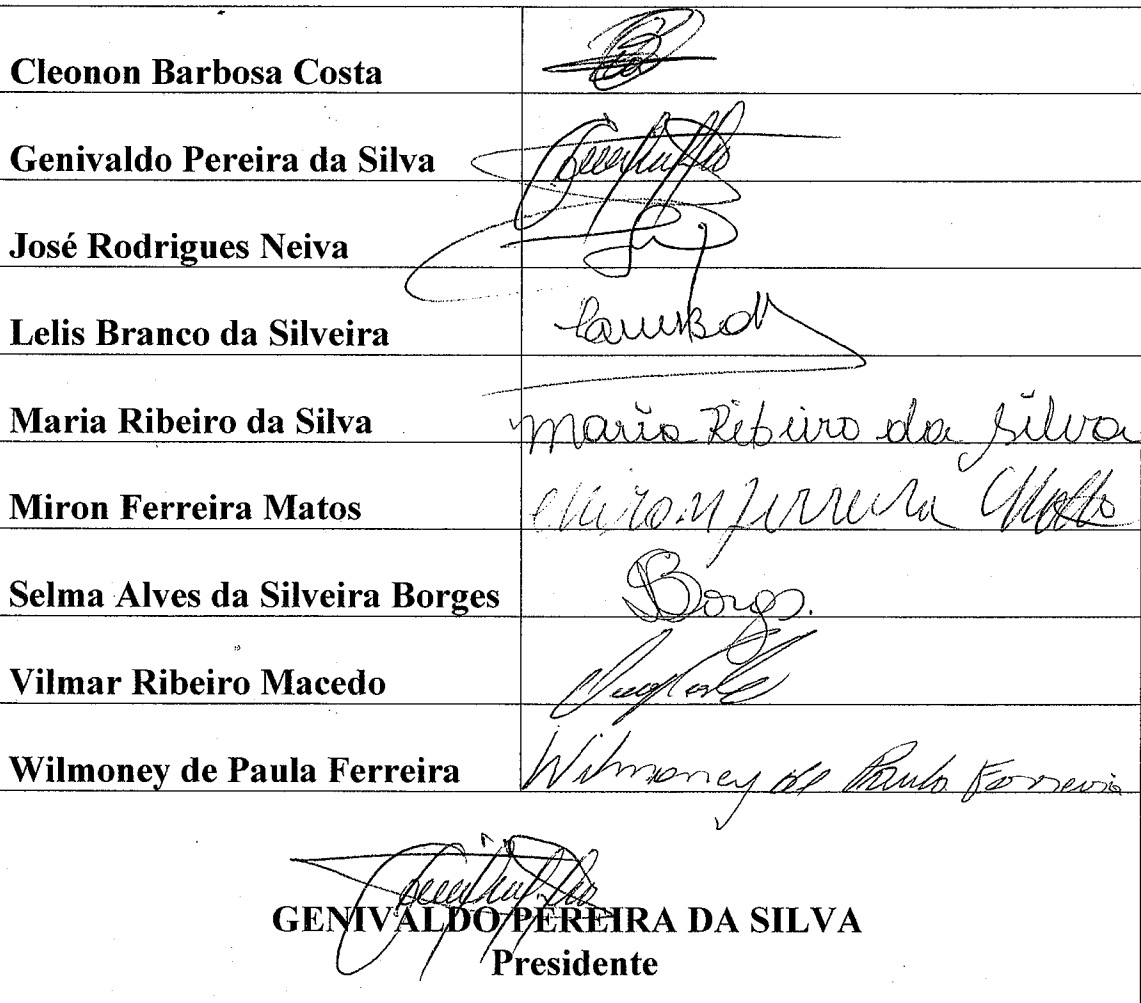 Cleonon Barbosa Costa
Genivaldo Pereira da Silva
José Rodrigues Neiva
Lelis Branco da Silveira
Maria Ribeiro da Silva Maria Ribeiro da Silva
Miron Ferreira Matos Miron Ferreira
Selma Alves da Silveira Borges Borges.
Vilmar Ribeiro Macedo
Wilmoney de Paula Ferreira Wilmoney de Paula Ferreira
GENIVALDO PEREIRA DA SILVA
Presidente